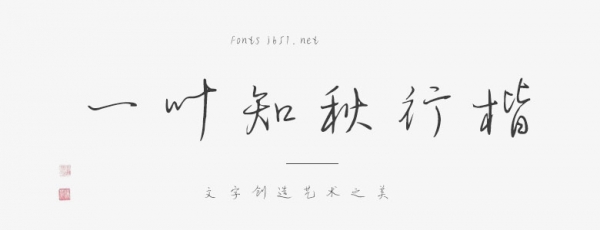 Fonts jb51.net
一叶知秋行楷
文字创造艺术之美